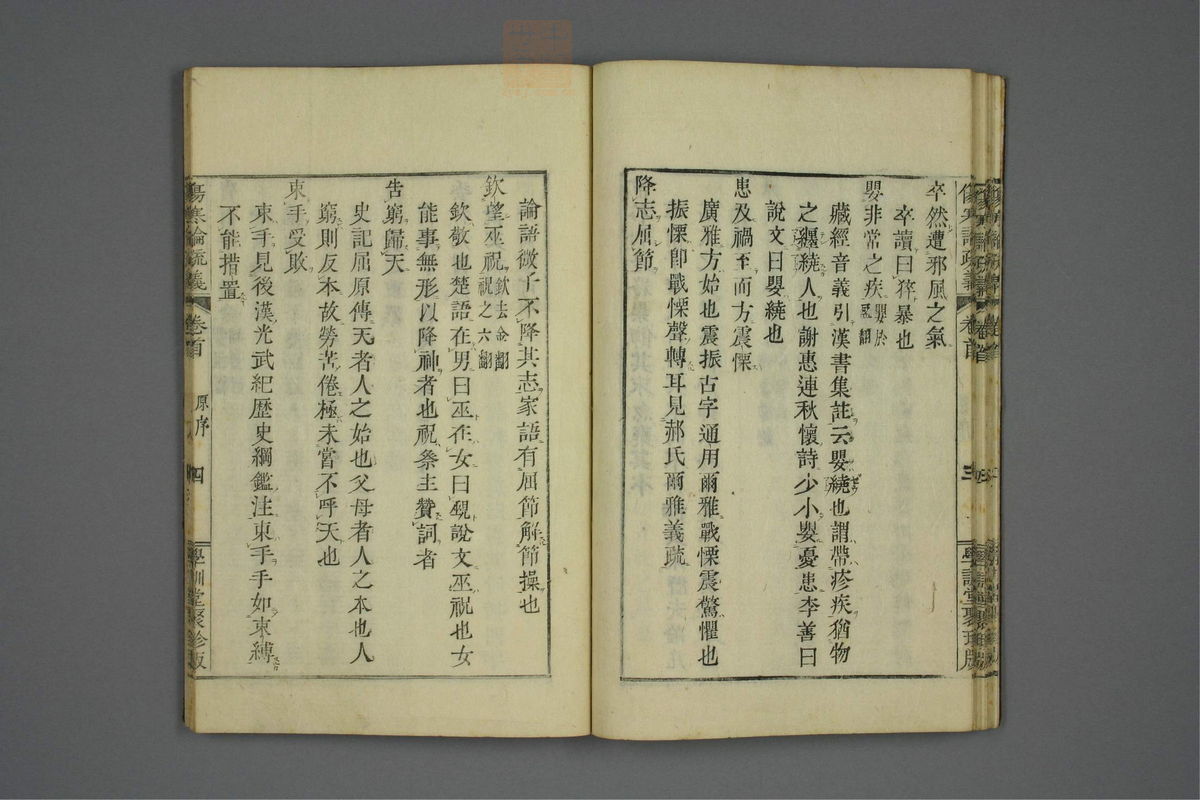 卒然遭邪風之氣
卒讀曰猝暴也
嬰非常之疾
嬰於
盈翻
藏經音義引漢書集註云嬰繞也謂帶疹疾猶物
之纏繞人也謝惠連秋懷詩少小嬰憂患李善曰
說文曰嬰繞也
患及禍至而方震慄
廣雅方始也震振古字通用爾雅戰慄震驚懼也
振慄即戰慄聲轉耳見郝氏爾雅義疏
降志屈節
論語微子不降其志家語有屈節解節操也
欽望巫祝
欽去金翻
祝之六翻
欽敬也楚語在男曰巫在女曰覡說文巫祝也女
能事無形以降神者也祝祭主贊詞者
告窮歸天
史記屈原傳天者人之始也父母者人之本也人
窮則反本故勞苦倦極未嘗不呼天也
束手受敗
束手見後漢光武紀歷史綱鑑注束手手如束縛
不能措置
傷寒論疏義
卷首
原序
四
學訓堂聚珍版
卷首
三
學訓堂聚珍版